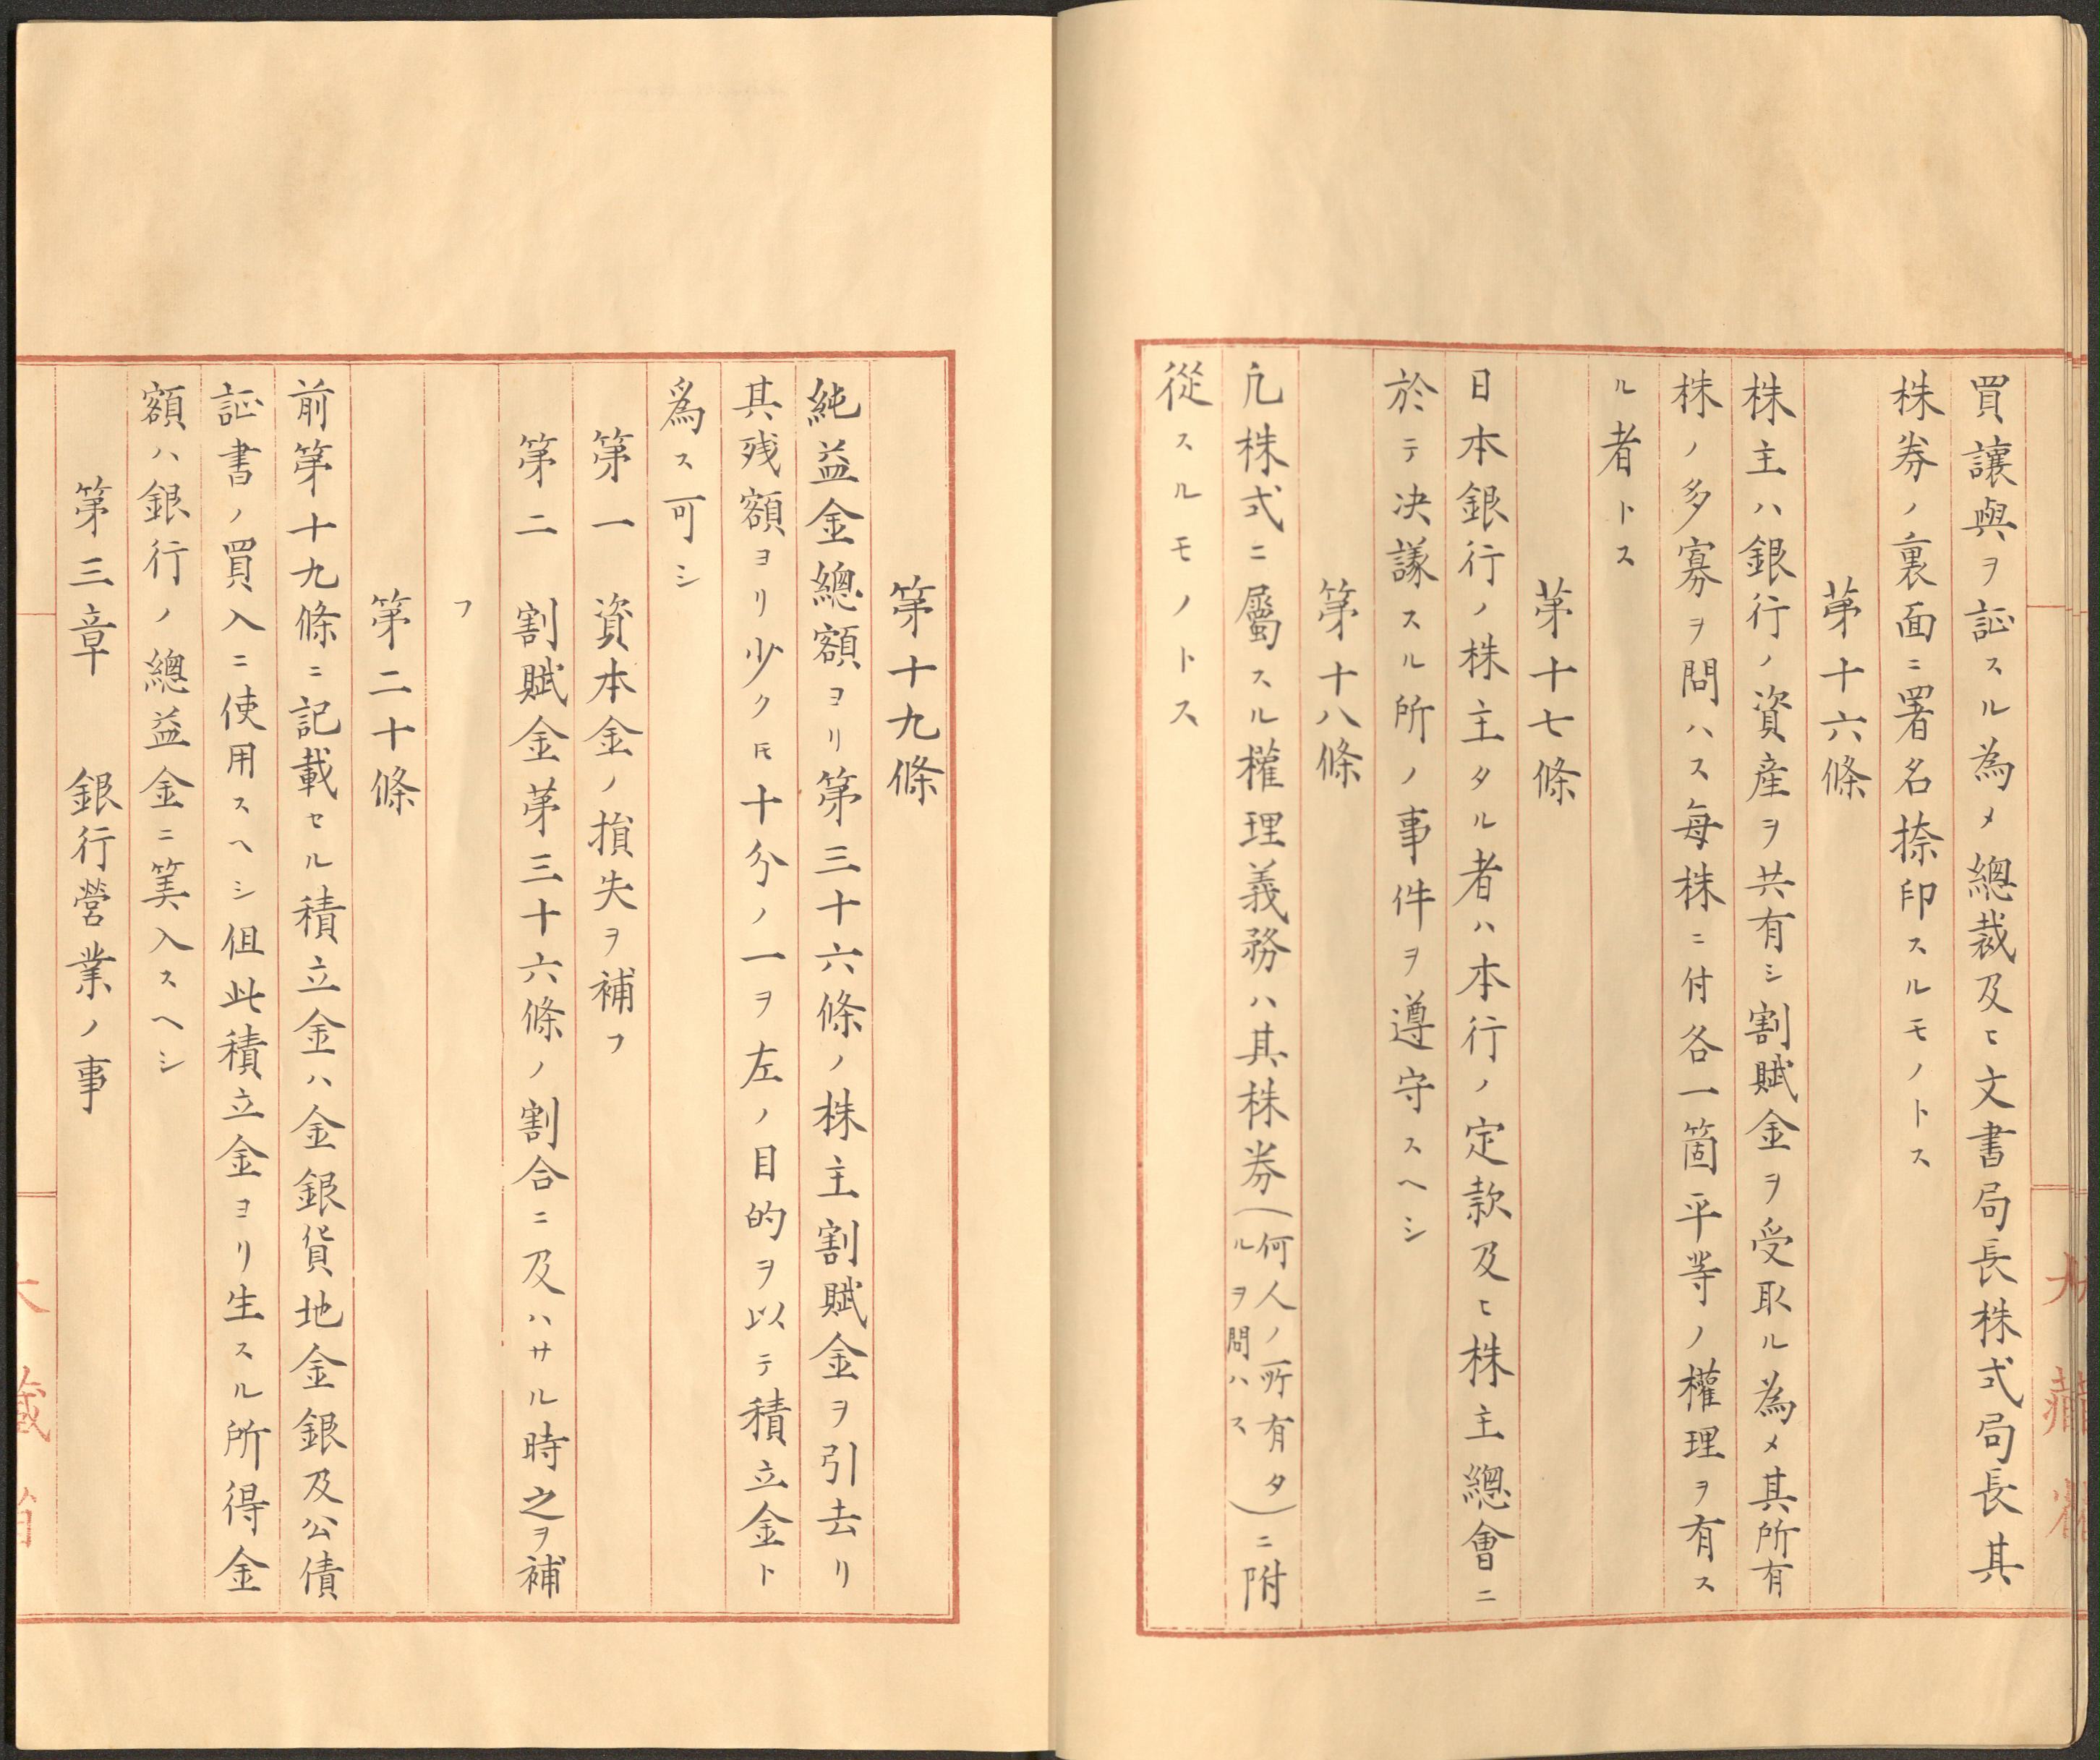 買讓與ヲ証スル為メ總裁及ヒ文書局長株式局長其
株券ノ裏面ニ署名捺印スルモノトス
第十六條
株主ハ銀行ノ資産ヲ共有シ割賦金ヲ受取ル為メ其所有
株ノ多寡ヲ問ハス每株ニ付各一箇平等ノ權理ヲ有ス
ル者トス
第十七條
日本銀行ノ株主タル者ハ本行ノ定款及ヒ株主總會ニ
於テ决議スル所ノ事件ヲ遵守スヘシ
第十八條
凢株式ニ屬スル權理義務ハ其株券(何人ノ所有タルヲ問ハス)ニ附
從スルモノトス
第十九條
純益金總額ヨリ第三十六條ノ株主割賦金ヲ引去リ
其残額ヨリ少クㇳモ十分ノ一ヲ左ノ目的ヲ以テ積立金ト
爲ス可シ
第一 資本金ノ損失ヲ補フ
第二 割賦金第三十六條ノ割合ニ及ハサル時之ヲ補
フ
第二十條
前第十九條ニ記載セル積立金ハ金銀貨地金銀及公債
証書ノ買入ニ使用スヘシ但此積立金ヨリ生スル所得金
額ハ銀行ノ總益金ニ筭入スヘシ
第三章 銀行營業ノ事
大藏省